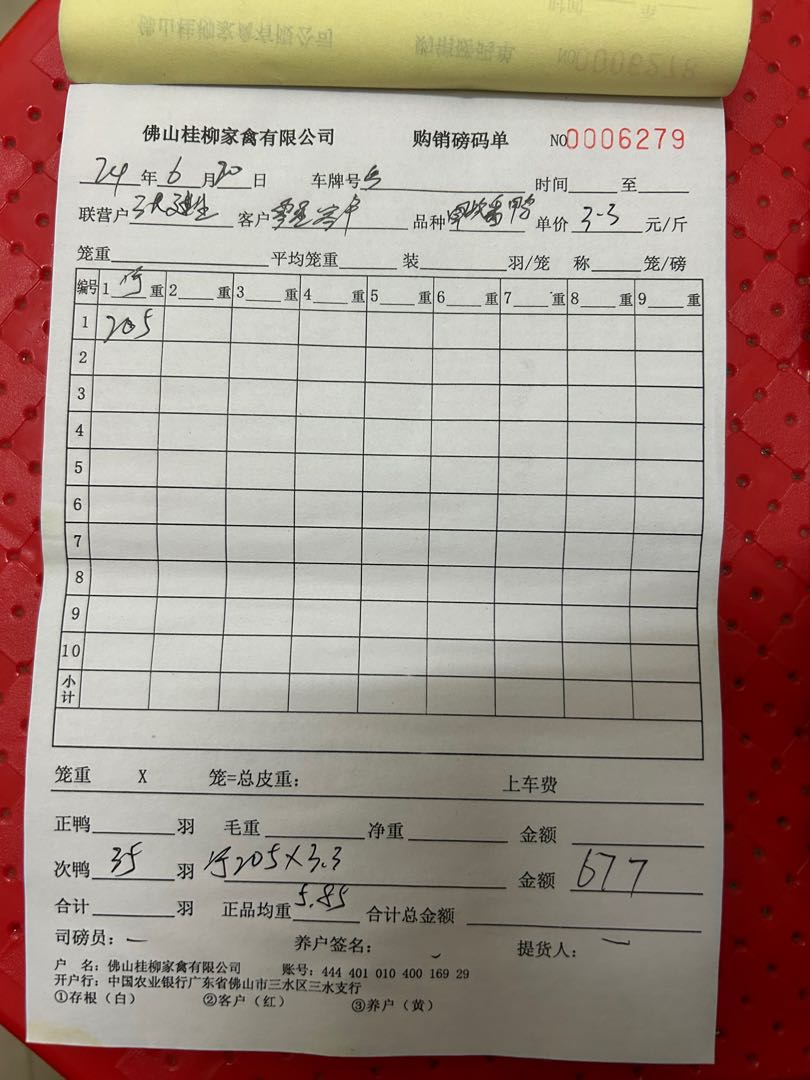 佛山桂柳家禽有限公司 购销磅码单 NO0006279
24年6月20日 车牌号 时间 至
联营户 客户 零星客户 品种 番鸭 单价 3-3 元/斤
笼重 平均笼重 装 羽/笼 称 笼/磅
编号 1 净 重 2 重 3 重 4 重 5 重 6 重 7 重 8 重 9 重
1 205
2
3
4
5
6
7
8
9
10
小计
笼重 X 笼=总皮重： 上车费
正鸭 羽 毛重 净重 金额
次鸭 35 羽 净205X3.3 金额 677
合计 羽 正品均重 5.85 合计总金额
司磅员： 养户签名： 提货人：
户 名：佛山桂柳家禽有限公司 账号：444 401 010 400 169 29
开户行：中国农业银行广东省佛山市三水区三水支行
①存根（白） ②客户（红） ③养户（黄）